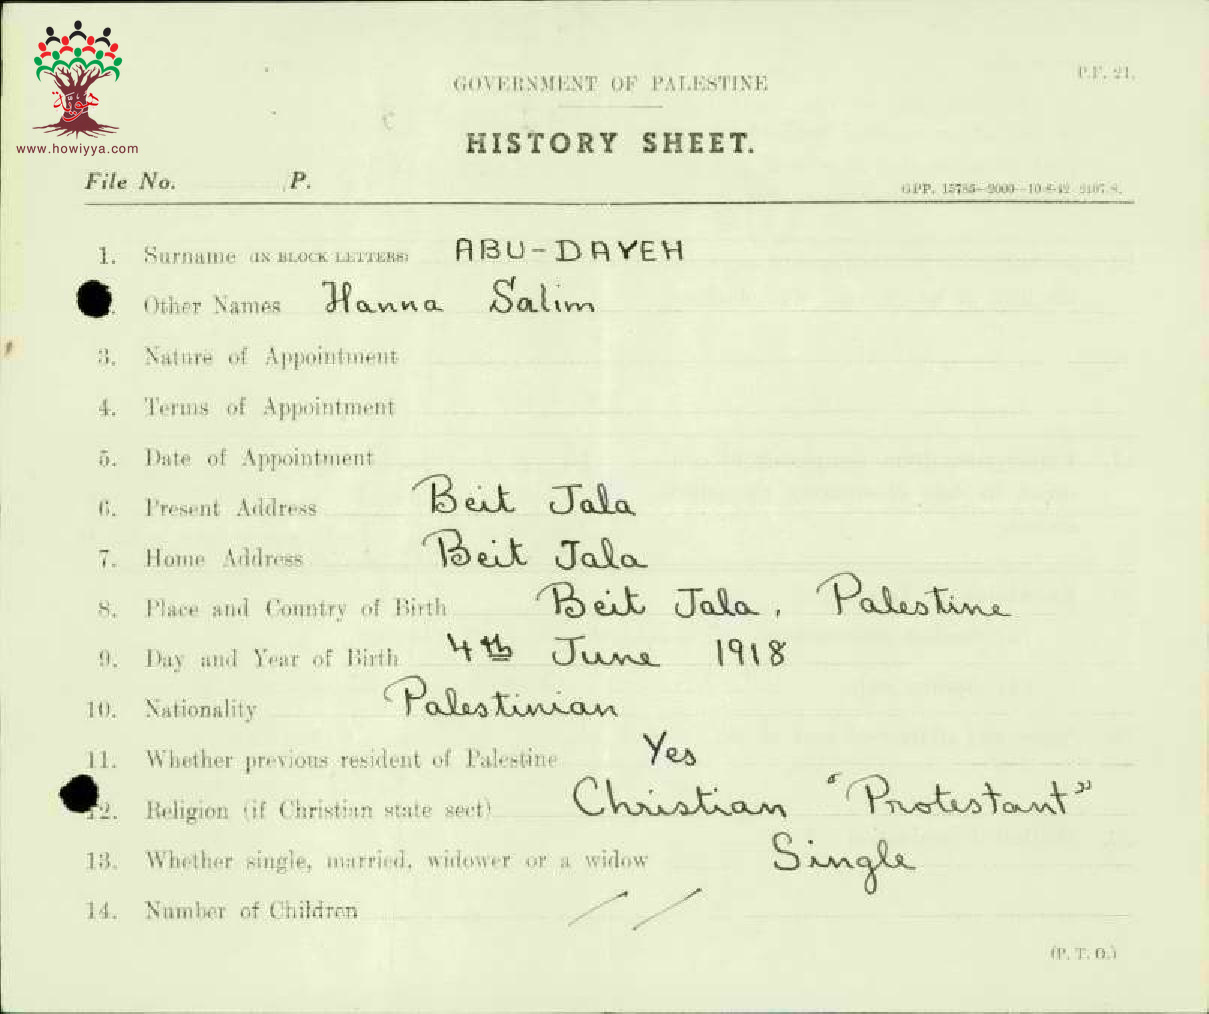 هوية
www.howiyya.com
P.F. 21.
GOVERNMENT OF PALESTINE
HISTORY SHEET.
File No. P.
GPP. 15785—2000—10-8-42
1. Surname (IN BLOCK LETTERS) ABU-DAYEH
Other Names Hanna Salim
3. Nature of Appointment
4. Terms of Appointment
5. Date of Appointment
6. Present Address Beit Jala
7. Home Address Beit Jala
8. Place and Country of Birth Beit Jala, Palestine
9. Day and Year of Birth 4th June 1918
10. Nationality Palestinian
11. Whether previous resident of Palestine Yes
12. Religion (if Christian state sect) Christian "Protestant"
13. Whether single, married, widower or a widow Single
14. Number of Children //
(P. T. O.)